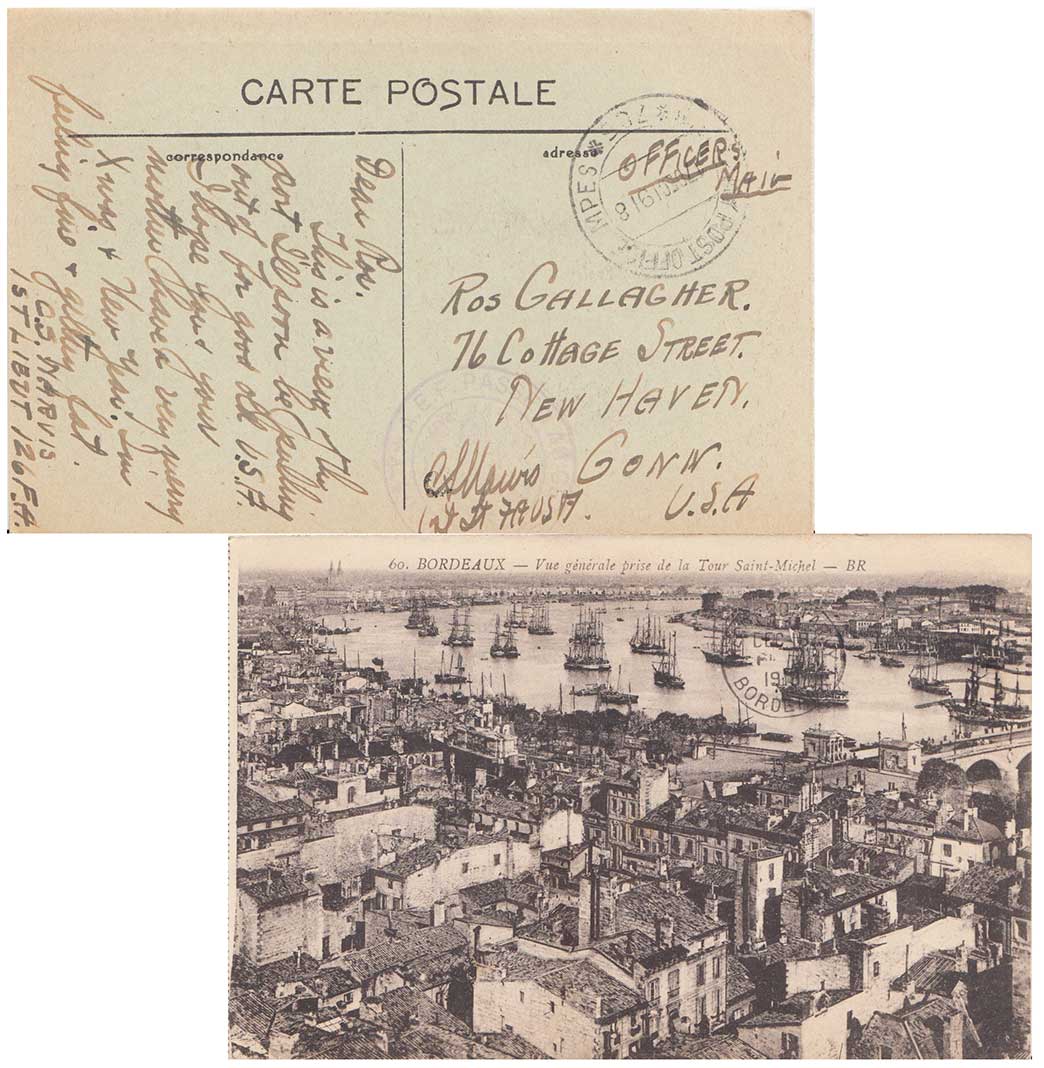 CARTE POSTALE
correspondance
adresse
Dear Ros.
This is a view of the
port I'll soon be sailing
out of for good old U.S.A
I hope you & your
mother have a very merry
Xmas. & New Year. I'm
feeling fine & getting fat.
C.S. MARVIS
1ST LIEUT 126 F.A.
OFFICERS
MAIL
POST OFFICE MPES * 702 *
DEC 191 8
ROS GALLAGHER.
76 COTTAGE STREET.
NEW HAVEN.
CONN.
U.S.A
1st Lt FA USA.
A.E.F. PASSED
60. BORDEAUX — Vue générale prise de la Tour Saint-Michel — BR
DEC
19
BORDE